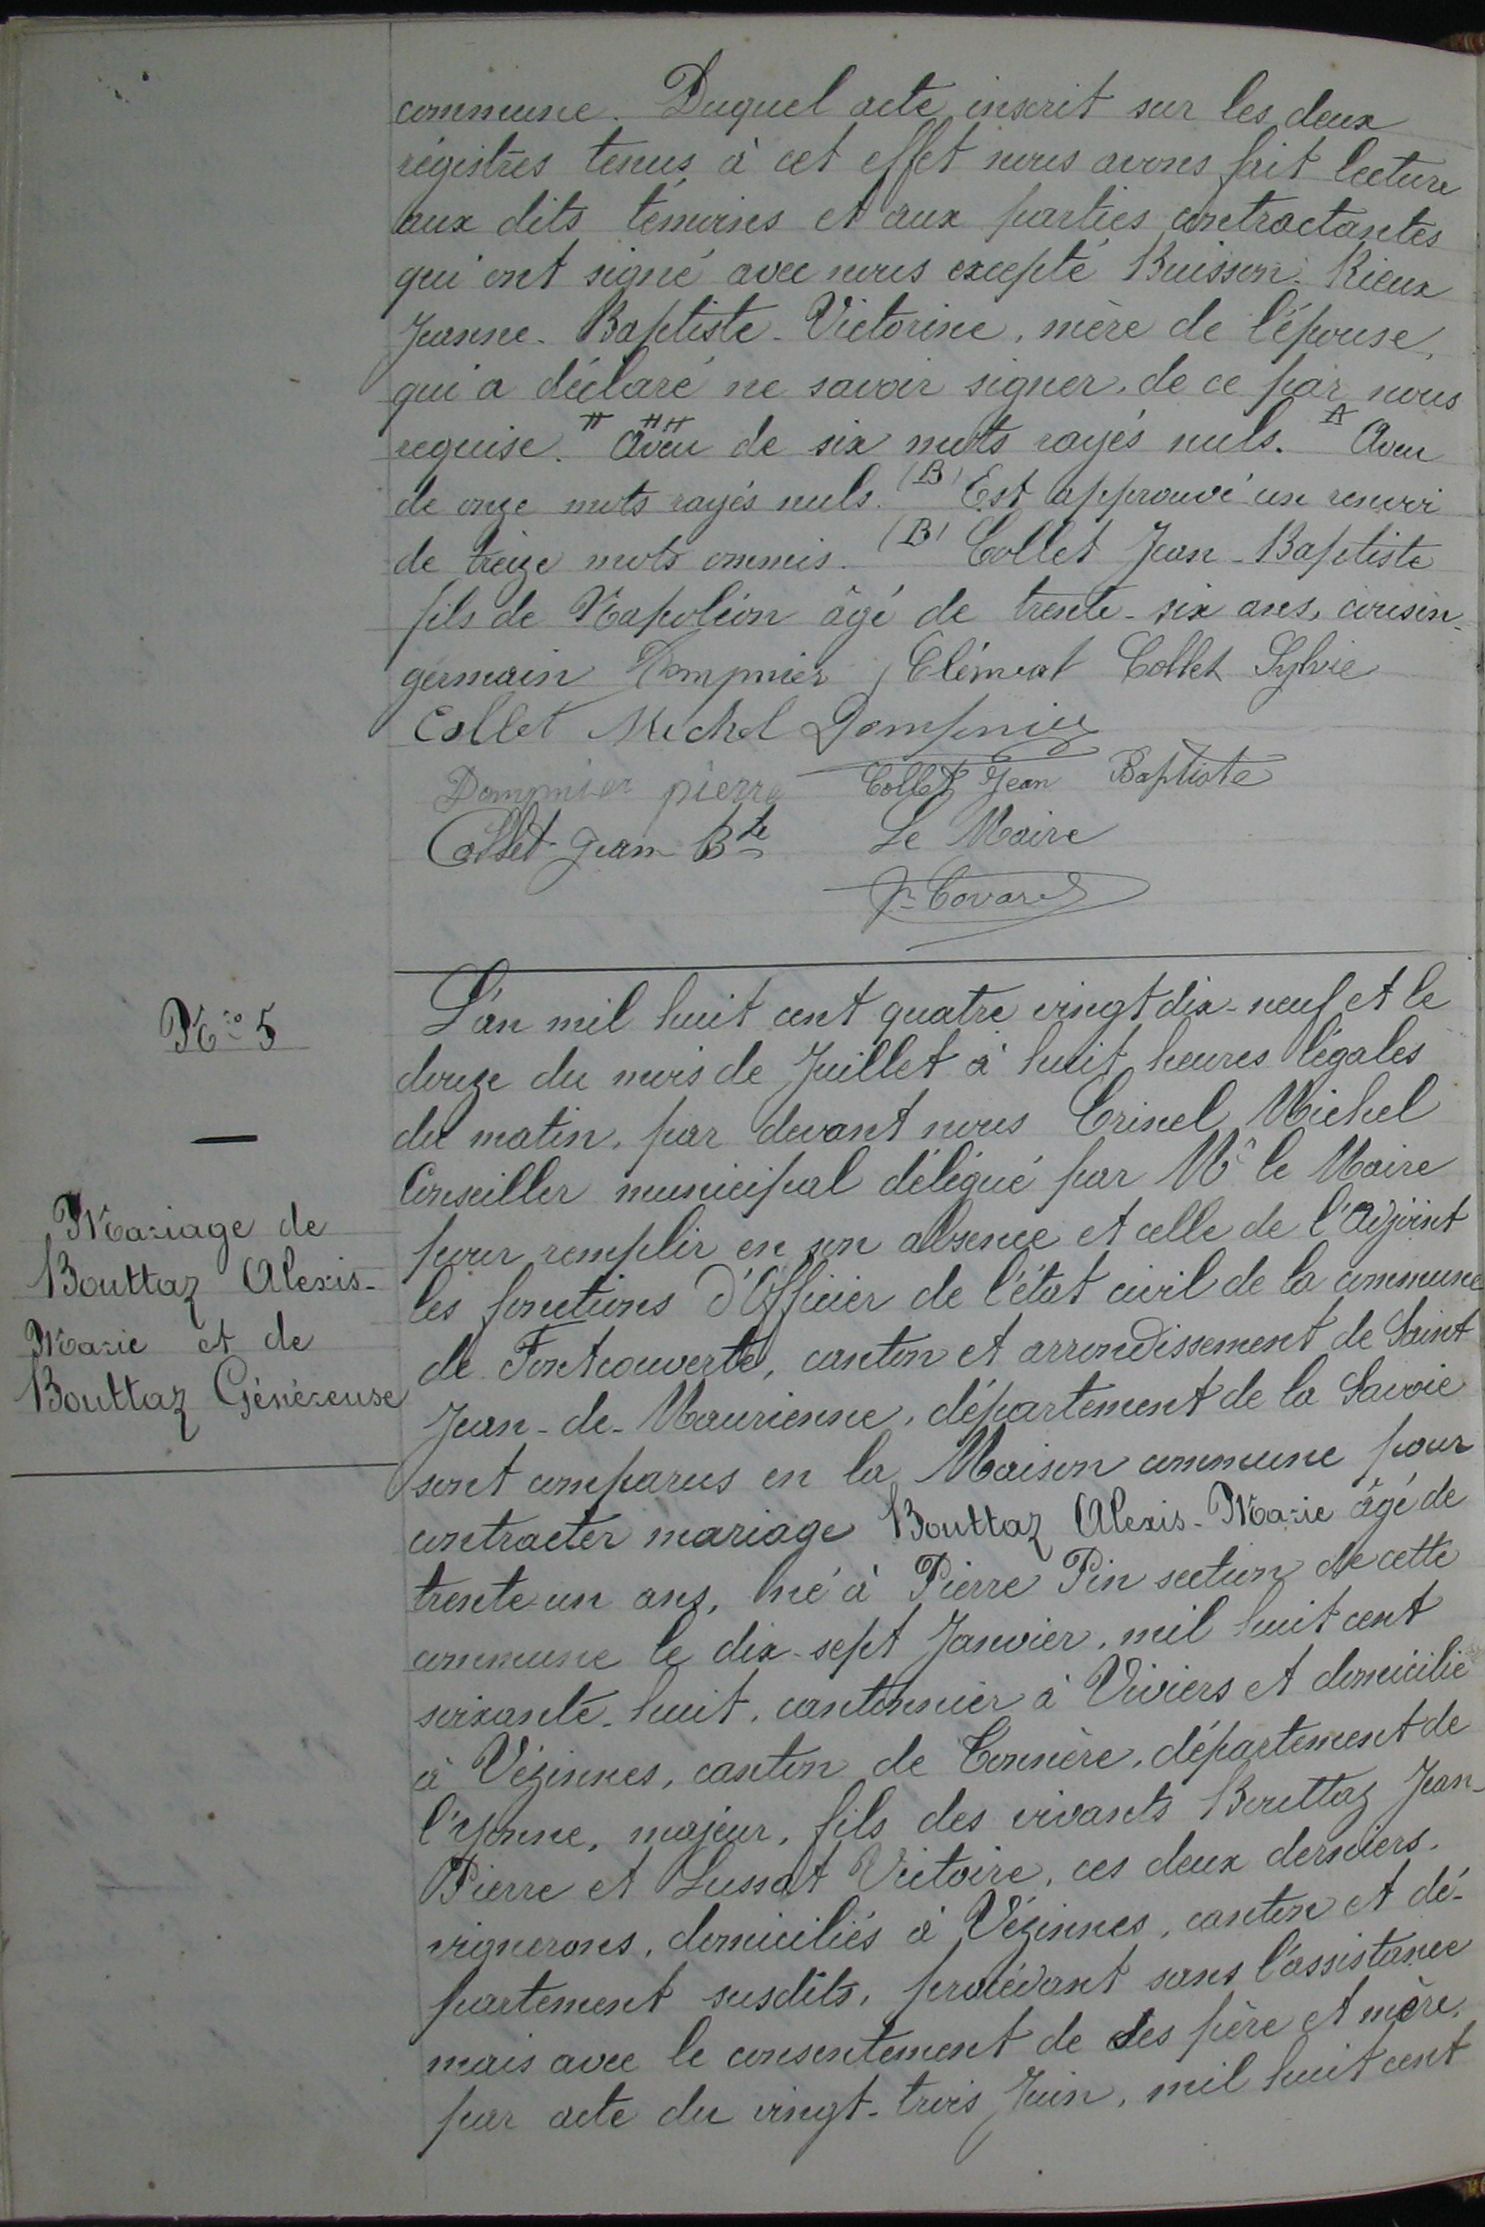 commune. Duquel acte inscrit sur les deux
régistres tenus à cet effet nous avons fait lecture
aux dits témoins et aux parties contractantes
qui ont signé avec nous excepté Buisson-Rieux
Jeanne-Baptiste-Victorine, mère de l'épouse,
qui a déclaré ne savoir signer, de ce par nous
requise. Aveu de six mots rayés nuls. Aveu
de onze mots rayés nuls. (B) Est approuvé un renvoi
de treize mots ommis. (B) Collet Jean-Baptiste
fils de Napoléon âgé de trente-six ans, cousin-
germain Dompnier Clément Collet Sylvie
Collet Michel Dompnier
Dompnier pierre Collet Jean Baptiste
Collet Jean Bte Le Maire
Covarel
N° 5
Mariage de
Bouttaz Alexis-
Marie et de
Bouttaz Généreuse
L'an mil huit cent quatre vingt dix-neuf et le
douze du mois de Juillet à huit heures légales
du matin, par devant nous Crinel Michel
Conseiller municipal délégué par Mr le Maire
pour remplir en son absence et celle de l'Adjoint
les fonctions d'Officier de l'état civil de la commune
de Fontcouverte, canton et arrondissement de Saint
Jean-de-Maurienne, département de la Savoie
sont comparus en la Maison commune pour
contracter mariage Bouttaz Alexis-Marie âgé de
trente un ans, né à Pierre Pin section de cette
commune le dix-sept Janvier, mil huit cent
soixante-huit, cantonnier à Viviers et domicilié
à Vézinnes, canton de Tonnère, département de
l'Yonne, majeur, fils des vivants Bouttaz Jean-
Pierre et Lussat Victoire, ces deux derniers,
vignerons, domiciliés à Vézinnes, canton et dé-
partement susdits, procédant sans l'assistance
mais avec le consentement de ses père et mère,
par acte du vingt-trois Juin, mil huit cent